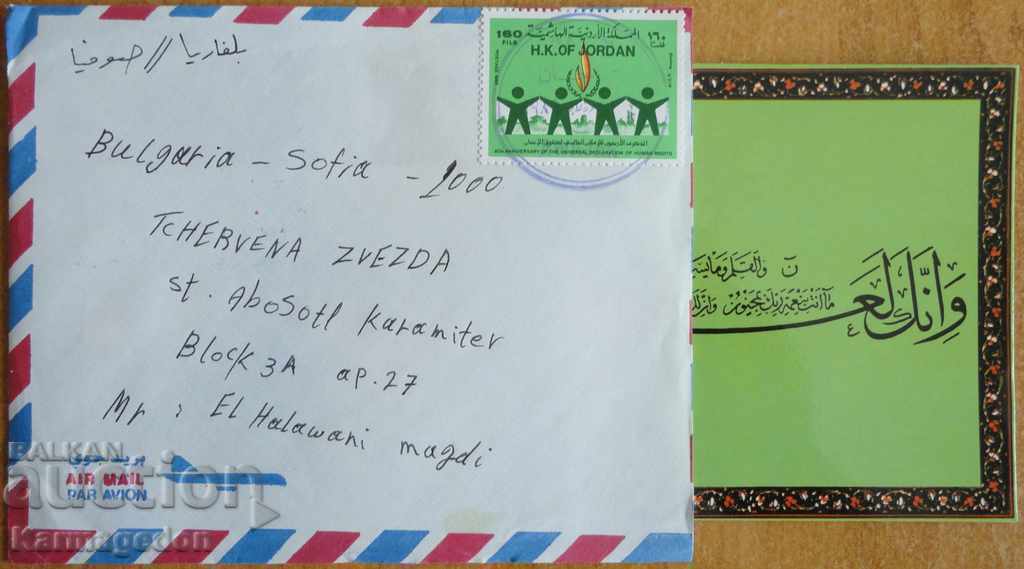 بلغاريا // صوفيا
160
FILS
المملكة الأردنية الهاشمية
١٦٠
فلسا
H.K. OF JORDAN
40th ANNIVERSARY OF THE UNIVERSAL DECLARATION OF HUMAN RIGHTS
Bulgaria - Sofia - 1000
TCHERVENA ZVEZDA
st. AboSotl Karamiter
Block 3A ap.27
Mr : El Halawani magdi
بريد جوي
AIR MAIL
PAR AVION
ن والقلم وما يسـ
ما أنت بنعمة ربك بمجنون وإن لك
وَإِنَّكَ لَعَـ
BALKAN
auction
Karmagedon